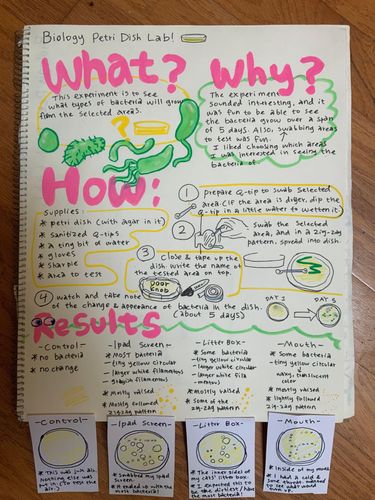 Biology Petri Dish Lab!
What?
This experiment is to see
what types of bacteria will grow
from the selected areas.
?
Why?
The experiment
sounded interesting, and it
was fun to be able to see
the bacteria grow over a span
of 5 days. Also, swabbing areas
to test was fun.
I liked choosing which areas
I was interested in seeing the
bacteria of.
How:
Supplies:
* petri dish (with agar in it)
* sanitized Q-tips
* a tiny bit of water
* gloves
* sharpie
* area to test
1 prepare Q-tip to swab selected
area (If the area is dryer, dip the
Q-tip in a little water to wetten it)
2 Swab the selected
area, and in a zig-zag
pattern, spread into dish.
3 Close & tape up the
dish. write the name of
the tested area on top.
Door
Knob
4 watch and take note
of the change & appearance of bacteria in the dish.
(about 5 days)
DAY 1
DAY 5
Results
-Control-
* no bacteria
* no change
-Ipad Screen-
* Most bacteria
- tiny yellow circular
- larger white filamentous
- grayish filamentous
* Mostly raised
* Mostly followed
zig-zag pattern
-Litter Box-
* Some bacteria
- tiny yellow circular
- larger white fila-
mentous
* mostly raised
* Some of the
zig-zag pattern
-Mouth-
* Some bacteria
- tiny yellow circular
color
* mostly raised
* slightly followed
zig-zag pattern
-Control-
* This was
Nothing else was
-Ipad Screen-
* Swabbed my ipad
screen.
the most bacteria!
-Litter Box-
* The inner sides of
my cats' litter box.
* I expected this to
have the most bacteria!
-Mouth-
* Inside of my mouth
* I had a cold &
to see what